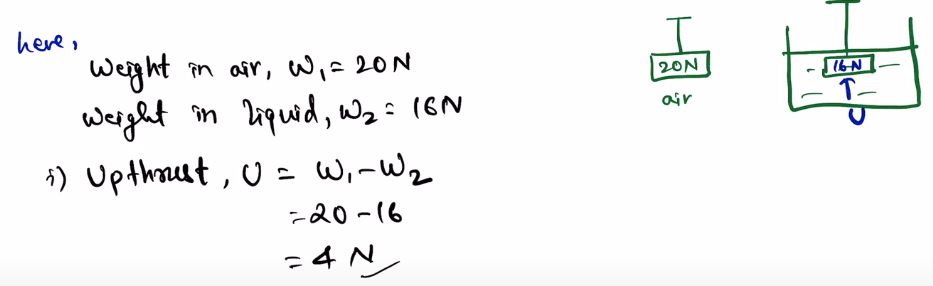 here,
Weight in air, W₁ = 20N
Weight in liquid, W₂ = 16N
i) Upthrust, U = W₁-W₂
= 20-16
= 4 N
20N
air
16N
U